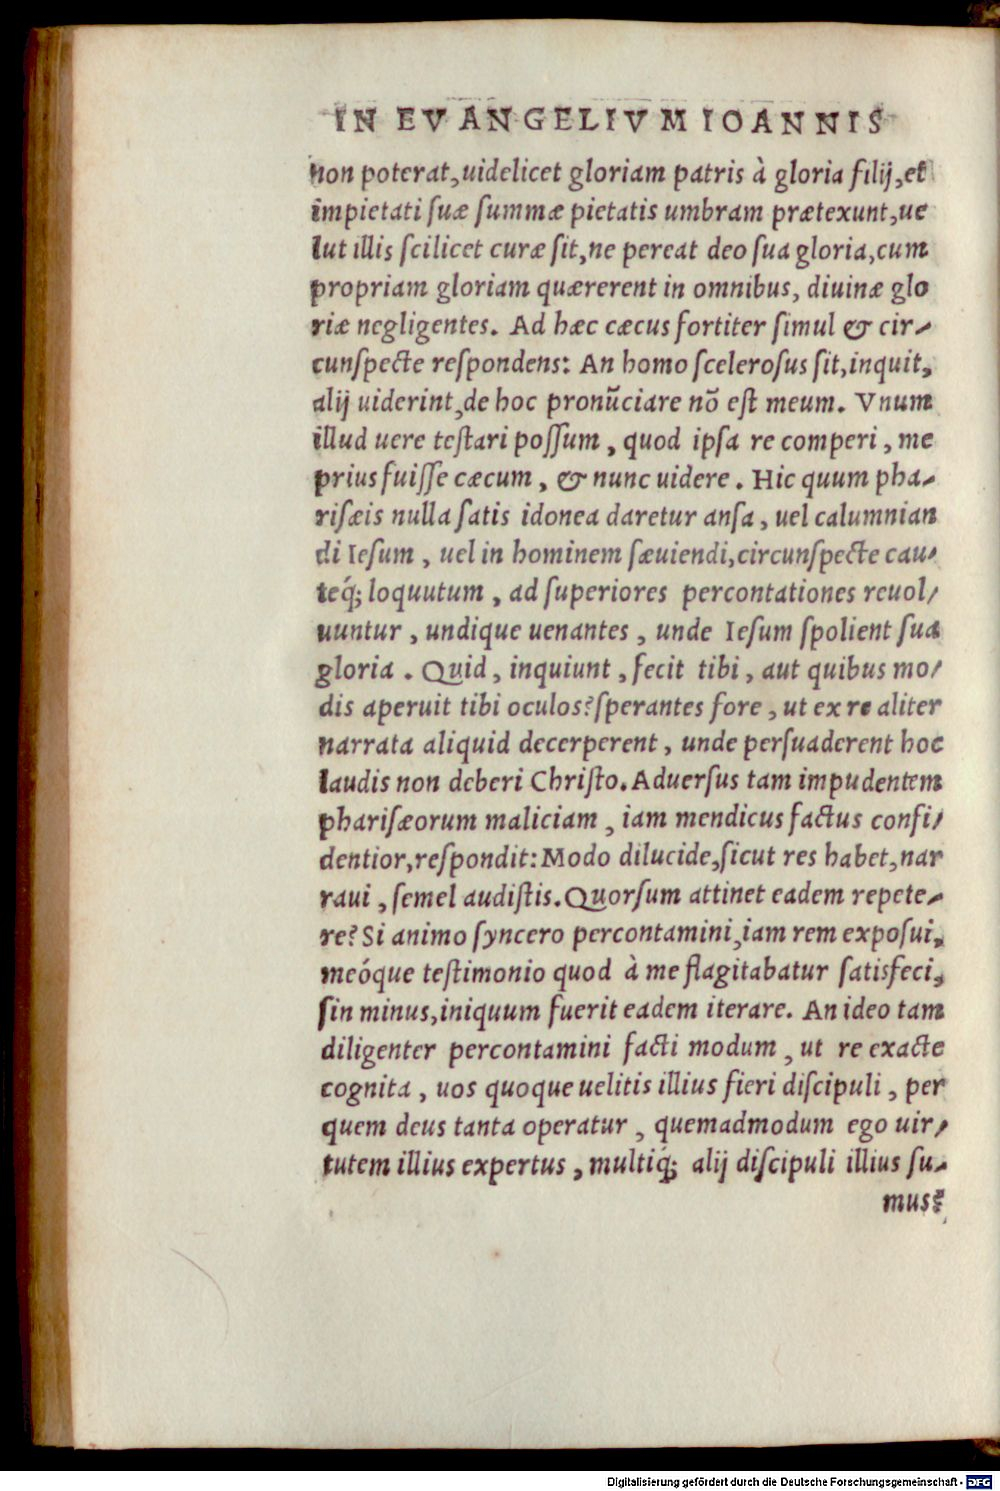 IN EVANGELIVM IOANNIS
non poterat, uidelicet gloriam patris à gloria filij, et
impietati suæ summæ pietatis umbram prætexunt, ue
lut illis scilicet curæ sit, ne pereat deo sua gloria, cum
propriam gloriam quærerent in omnibus, diuinæ glo
riæ negligentes. Ad hæc cæcus fortiter simul & cir-
cunspecte respondens: An homo scelerosus sit, inquit,
alij uiderint, de hoc pronũciare nõ est meum. Vnum
illud uere testari possum, quod ipsa re comperi, me
prius fuisse cæcum, & nunc uidere. Hic quum pha-
risæis nulla satis idonea daretur ansa, uel calumnian
di Iesum, uel in hominem sæuiendi, circunspecte cau-
teq́; loquutum, ad superiores percontationes reuol/
uuntur, undique uenantes, unde Iesum spolient sua
gloria. Quid, inquiunt, fecit tibi, aut quibus mo/
dis aperuit tibi oculos? sperantes fore, ut ex re aliter
narrata aliquid decerperent, unde persuaderent hoc
laudis non deberi Christo. Aduersus tam impudentem
pharisæorum maliciam, iam mendicus factus confi/
dentior, respondit: Modo dilucide, sicut res habet, nar
raui, semel audistis. Quorsum attinet eadem repete-
re? Si animo syncero percontamini, iam rem exposui,
meóque testimonio quod à me flagitabatur satisfeci,
sin minus, iniquum fuerit eadem iterare. An ideo tam
diligenter percontamini facti modum, ut re exacte
cognita, uos quoque uelitis illius fieri discipuli, per
quem deus tanta operatur, quemadmodum ego uir/
tutem illius expertus, multiq́; alij discipuli illius su-
mus?
Digitalisierung gefördert durch die Deutsche Forschungsgemeinschaft - DFG